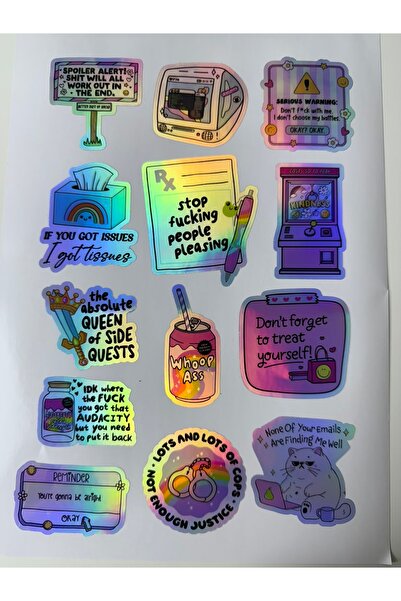 SPOILER ALERT!
SHIT WILL ALL
WORK OUT IN
THE END.
SERIOUS WARNING:
Don't f*ck with me
I don't choose my battles
OKAY? OKAY.
IF YOU GOT ISSUES
I got tissues
RX
stop
fucking
people
pleasing
KINDNESS
the
absolute
QUEEN
OF SIDE
QUESTS
WHOOP
ASS
Don't forget
to treat
yourself!
IDK where
the FUCK
you got that
AUDACITY
but you need
to put it back
NONE OF YOUR EMAILS
ARE FINDING ME WELL
REMINDER
You're gonna be alright
OKAY
LOTS AND LOTS OF COPS
NOT ENOUGH JUSTICE